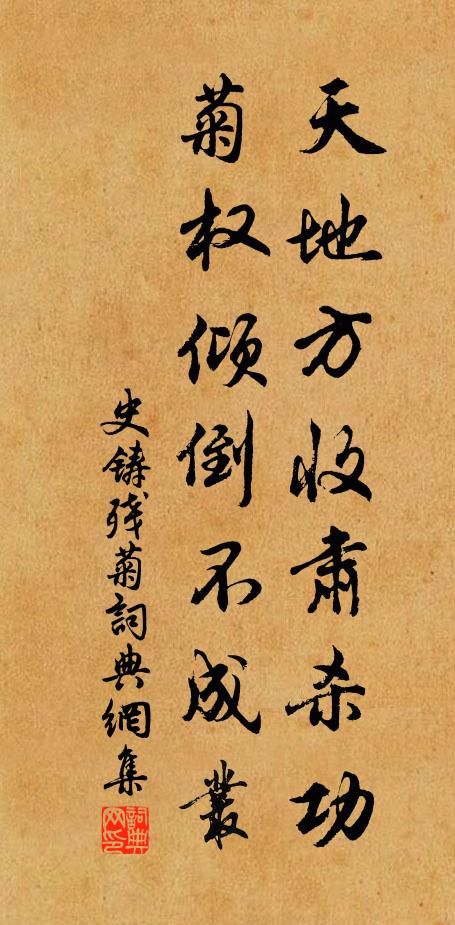 天地方收肃杀功
菊权倾倒不成叢
史铸残菊詞典網集
詞典网印